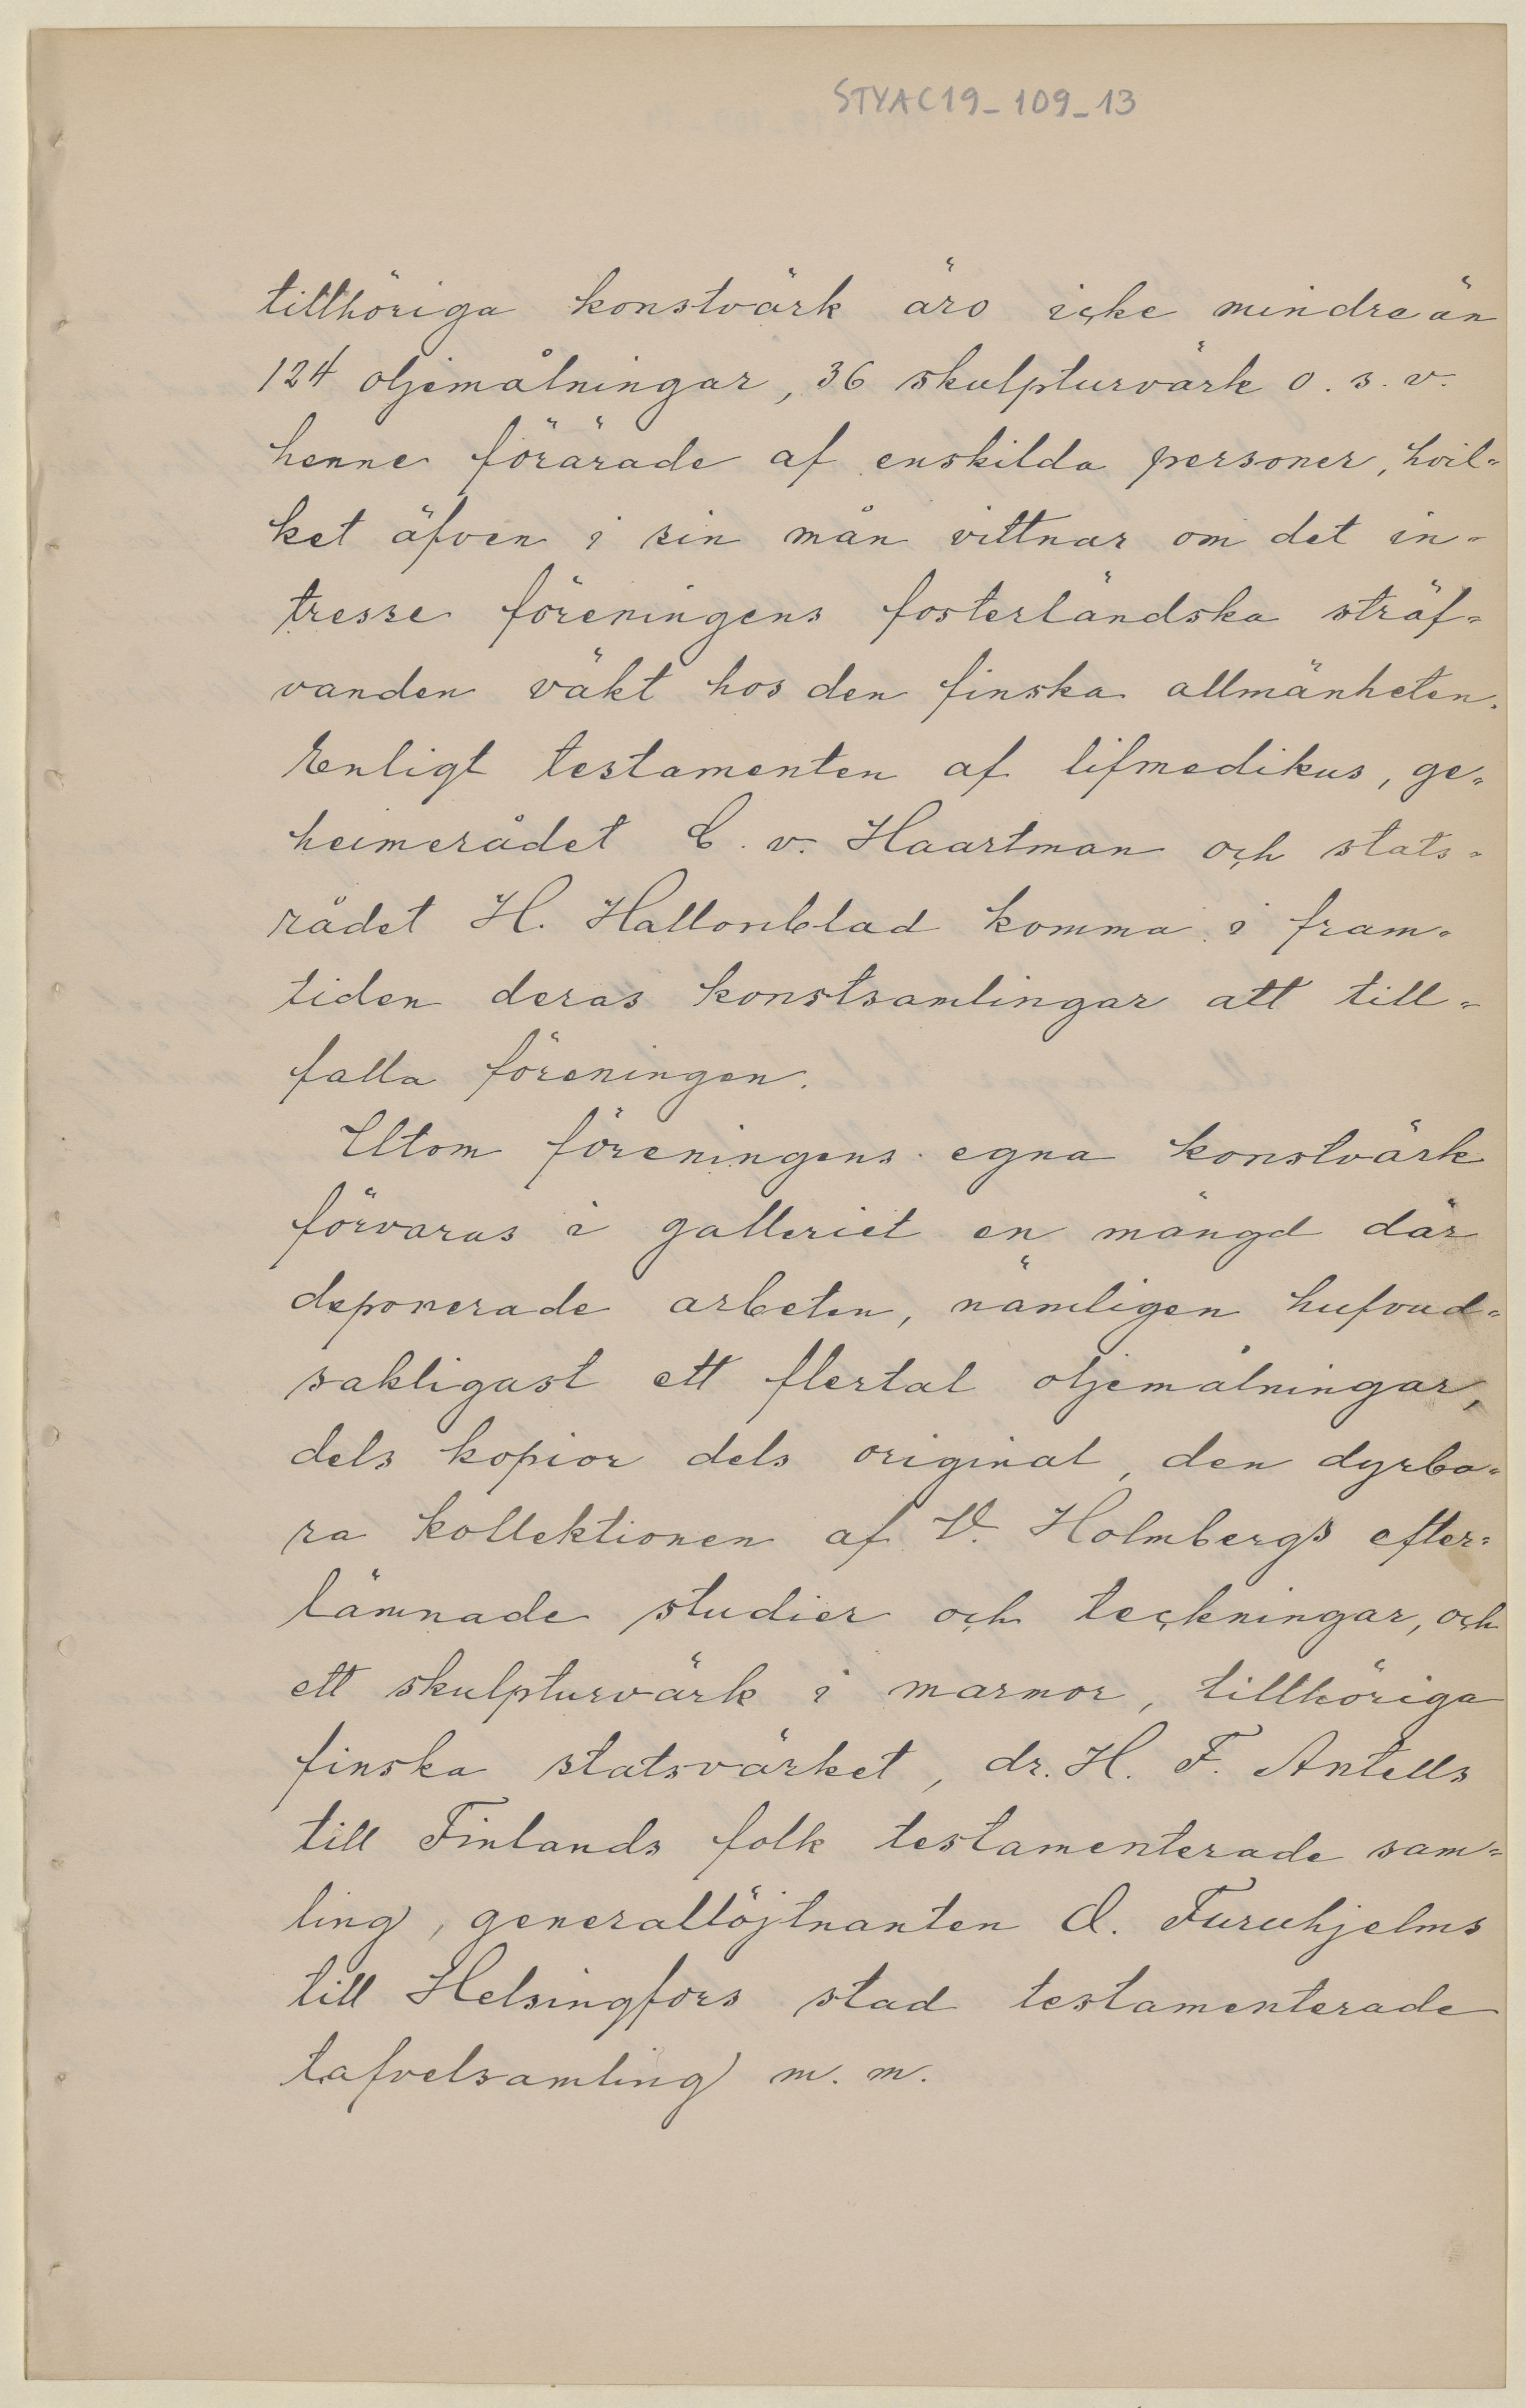 STYAC19_109_13
tillhöriga konstvärk äro icke mindre än
124 oljemålningar, 36 skulpturvärk o. s. v.
henne förärade af enskilda personer, hvil=
ket äfven i sin mån vittnar om det in=
tresse föreningens fosterländska sträf=
vanden väkt hos den finska allmänheten.
Enligt testamenten af lifmedikus, ge=
heimerådet C. v. Haartman och stats=
rådet H. Hallonblad komma i fram=
tiden deras konstsamlingar att till=
falla föreningen.
Utom föreningens egna konstvärk
förvaras i galleriet en mängd där
deponerade arbeten, nämligen hufvud=
sakligast ett flertal oljemålningar,
dels kopior dels original, den dyrba=
ra kollektionen af V. Holmbergs efter=
lämnade studier och teckningar, och
ett skulpturvärk i marmor, tillhöriga
finska statsvärket, dr. H. F. Antells
till Finlands folk testamenterade sam=
ling, generallöjtnanten O. Furuhjelms
till Helsingfors stad testamenterade
tafvelsamling m. m.